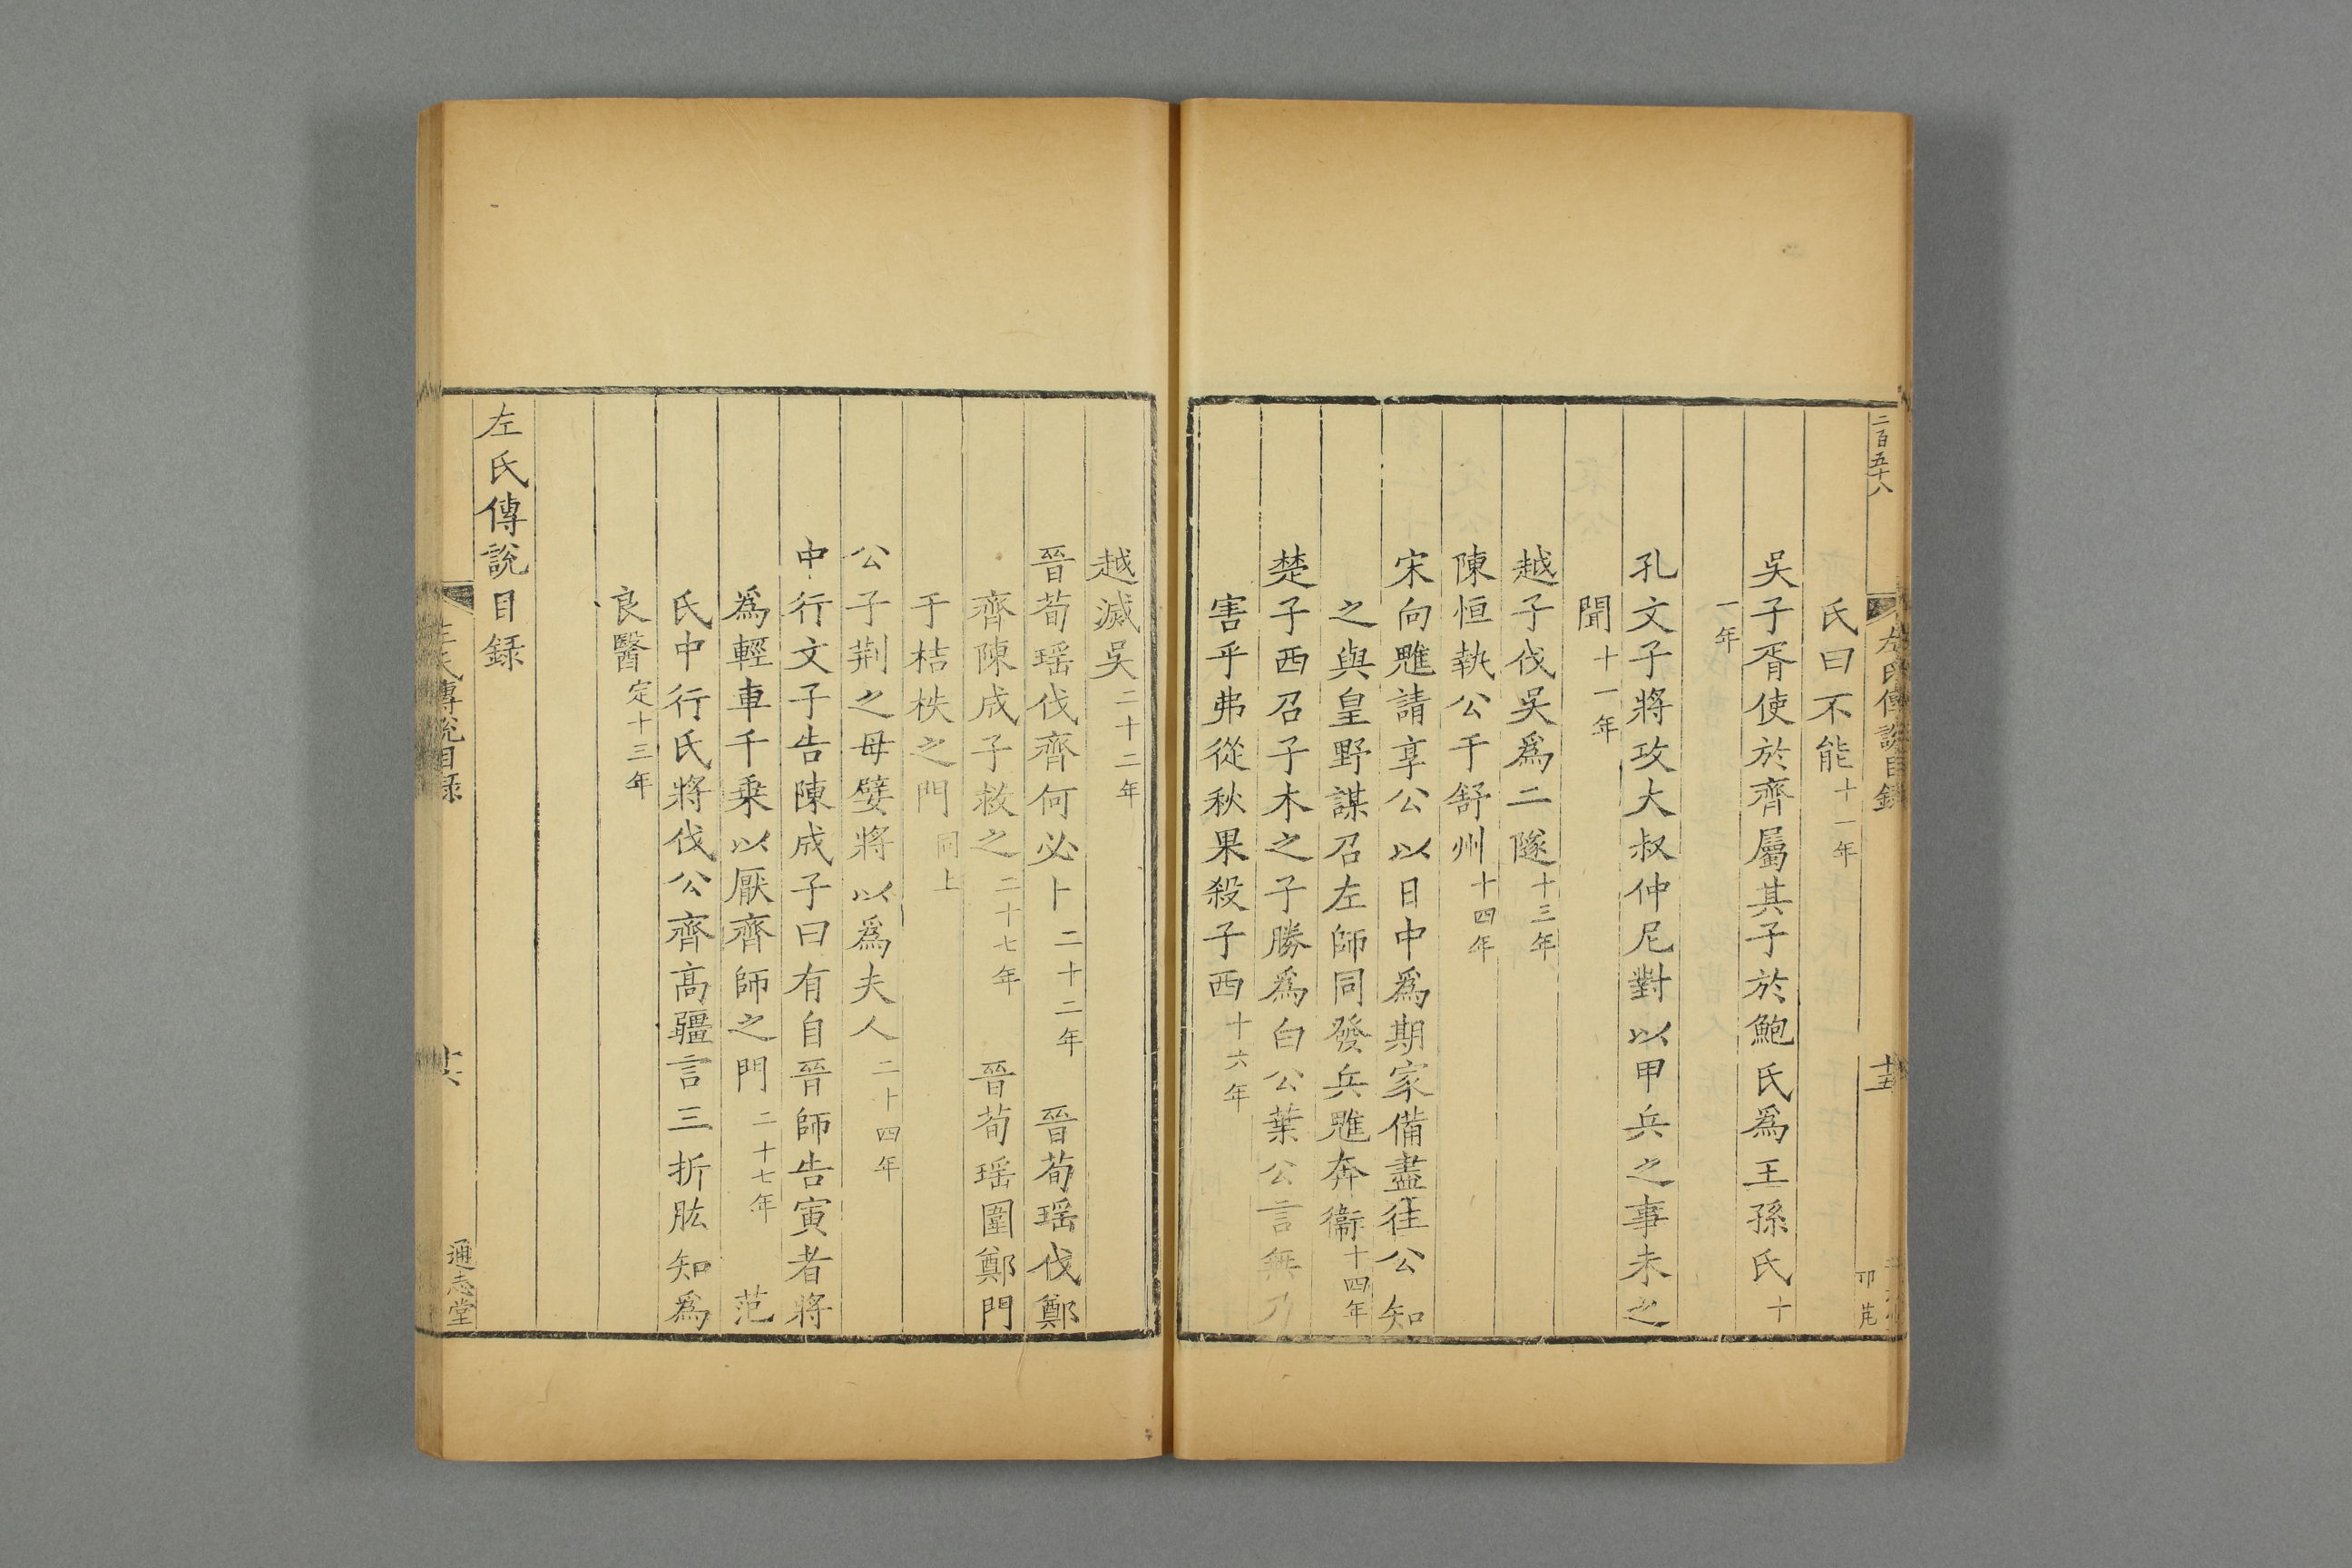 二百五十八
左氏傳說目錄
十五
氏曰不能十一年
吳子胥使於齊屬其子於鮑氏爲王孫氏十
一年
孔文子將攻大叔仲尼對以甲兵之事未之
聞十一年
越子伐吳爲二隧十三年
陳恒執公于舒州十四年
宋向魋請享公以日中爲期家備盡往公知
之與皇野謀召左師同發兵魋奔衞十四年
楚子西召子木之子勝爲白公葉公言無乃
害乎弗從秋果殺子西十六年
越滅吳二十二年
晉荀瑶伐齊何必卜二十二年 晉荀瑶伐鄭
齊陳成子救之二十七年 晉荀瑶圍鄭門
于桔柣之門同上
公子荆之母嬖將以爲夫人二十四年
中行文子告陳成子曰有自晉師告寅者將
爲輕車千乗以厭齊師之門二十七年 范
氏中行氏將伐公齊高彊言三折肱知爲
良醫定十三年
左氏傳說目録
左氏傳說目錄
通志堂